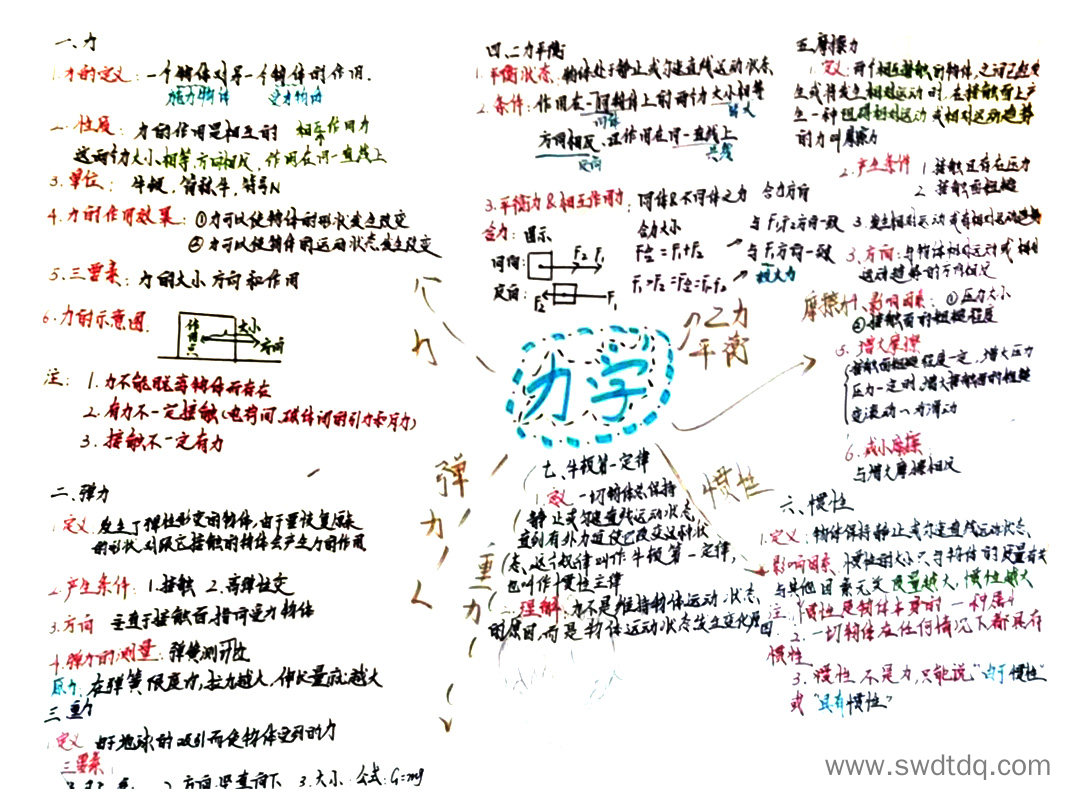 一、力
1.力的定义：一个物体对另一个物体的作用.
施力物体 受力物体
二.性质：力的作用是相互的 相互作用力
这两个力大小相等,方向相反,作用在同一直线上
3.单位：牛顿,简称牛,符号N
4.力的作用效果：①力可以使物体的形状发生改变
②力可以使物体的运动状态发生改变
5.三要素：力的大小方向和作用
6.力的示意图.
作用点 大小 方向
注：1.力不能脱离物体而存在
2.有力不一定接触(电荷间、磁体间的引力和斥力)
3.接触不一定有力
二、弹力
1.定义：发生了弹性形变的物体,由于要恢复原来
的形状,对跟它接触的物体会产生力的作用
2.产生条件：1.接触 2.弹性
3.方向 垂直于接触面,指向受力物体
4.弹力的测量：弹簧测力计
原力：在弹簧限度力,拉力越大,伸长量就越大
三.重力
1.定义 由于地球的吸引而使物体受到的力
三要素：
2.方向.竖直向下 3.大小 公式:G=mg
四、二力平衡
1.平衡状态：物体处于静止或匀速直线运动状态
2.条件：作用在一同物体上的两个力大小相等
同体 等大
方向相反、且作用在同一直线上
反向 共线
3.平衡力&相互作用力：同体&不同体之力 合力方向
合力：图示 合力大小 与F₁F₂方向一致
同向： F₂ F₁ F合=F₁+F₂
反向： F₂ F₁ F₁>F₂=F合=F₁-F₂ 与F₁方向一致
较大力
五.摩擦力
1.定义：两个相互接触的物体,之间已经发
生或将发生相对运动时,在接触面上产
生一种阻碍相对运动或相对运动趋势
的力叫摩擦力
2.产生条件 1.接触且存在压力
2.接触面粗糙
3.发生相对运动或有相对运动趋势
3.方向：与物体相对运动或相对
运动趋势的方向相反
影响因素：①压力大小
②接触面的粗糙程度
5.增大摩擦
接触面粗糙程度一定,增大压力
压力一定时,增大接触面的粗糙
变滚动
6.减小摩擦
与增大摩擦相反
力学
个力
二力平衡
摩擦力
惯性
弹力
重力
七、牛顿第一定律
1.定义 一切物体总保持
静止或匀速直线运动状态,
直到有外力迫使它改变这种状
态,这个规律叫作牛顿第一定律,
也叫作惯性定律
二.理解 力不是维持物体运动状态
的原因,而是物体运动状态发生变化原因
六、惯性
1.定义：物体保持静止或匀速直线运动状态.
影响因素 惯性的大小只与物体的质量有关
与其他因素无关 质量越大,惯性越大
注:1.惯性是物体本身的一种属性
2.一切物体在任何情况下都具有
惯性
3.惯性不是力,只能说“由于惯性”
或“具有惯性”
www.swdtdq.com